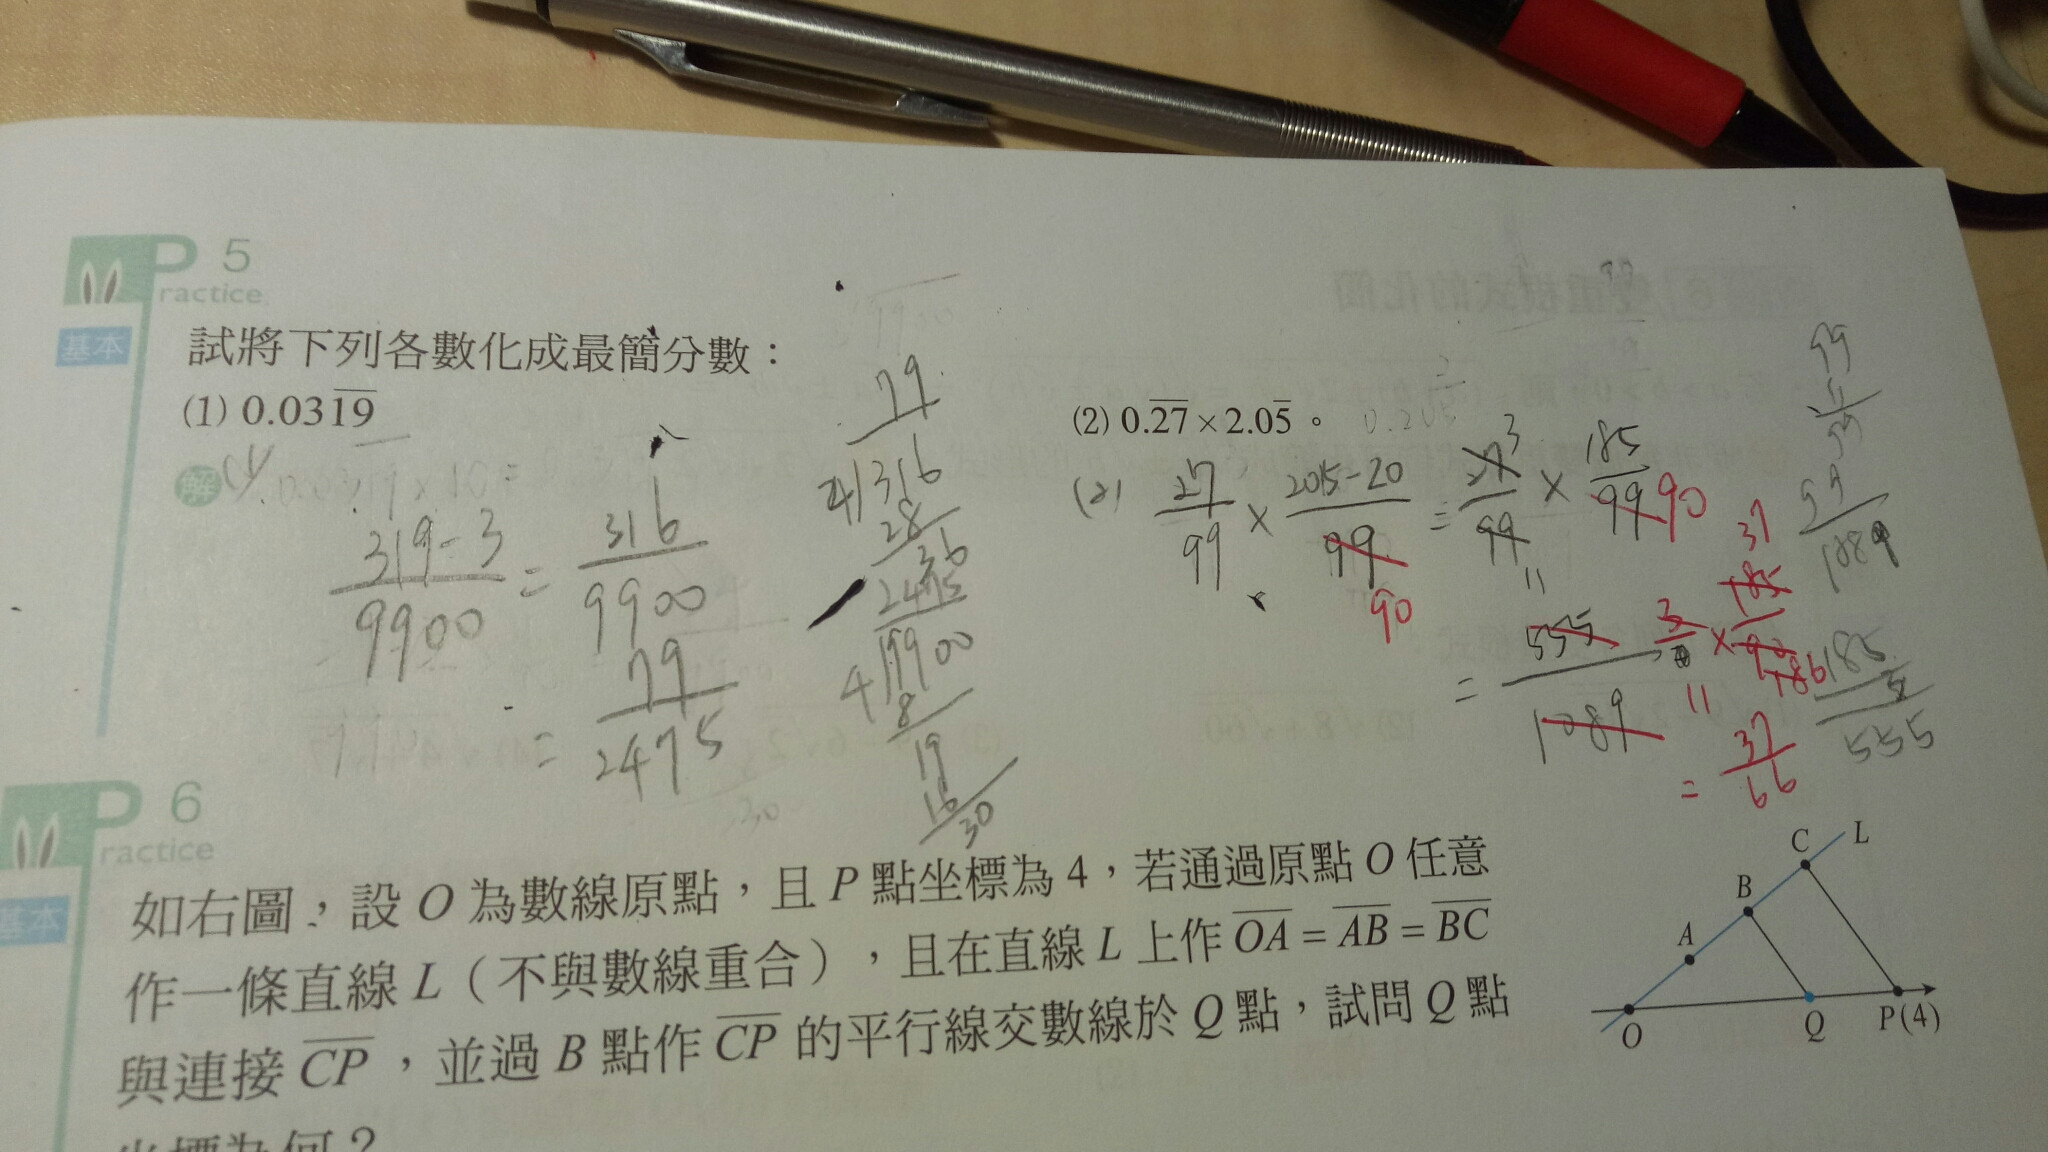 P 5
ractice
基本
試將下列各數化成最簡分數：
(1) 0.03\overline{19}
(2) 0.\overline{27} × 2.0\overline{5} 。
解
319-3 / 9900 = 316 / 9900
= 79 / 2475
79
4 316
28
36
2475
4 9900
8
19
16
30
(2) 27/99 ×
/ 99 90 = 27 3 / 99 11 × 185 / 99 90
= 555 / 1089 3 / 11 × 185 37 /
= 37 / 66
99
11
99
99
1089
185
555
P 6
ractice
基本
如右圖，設 O 為數線原點，且 P 點坐標為 4，若通過原點 O 任意
作一條直線 L（不與數線重合），且在直線 L 上作 \overline{OA} = \overline{AB} = \overline{BC}
與連接 \overline{CP}，並過 B 點作 \overline{CP} 的平行線交數線於 Q 點，試問 Q 點
坐標為何？
C L
B
A
O Q P(4)